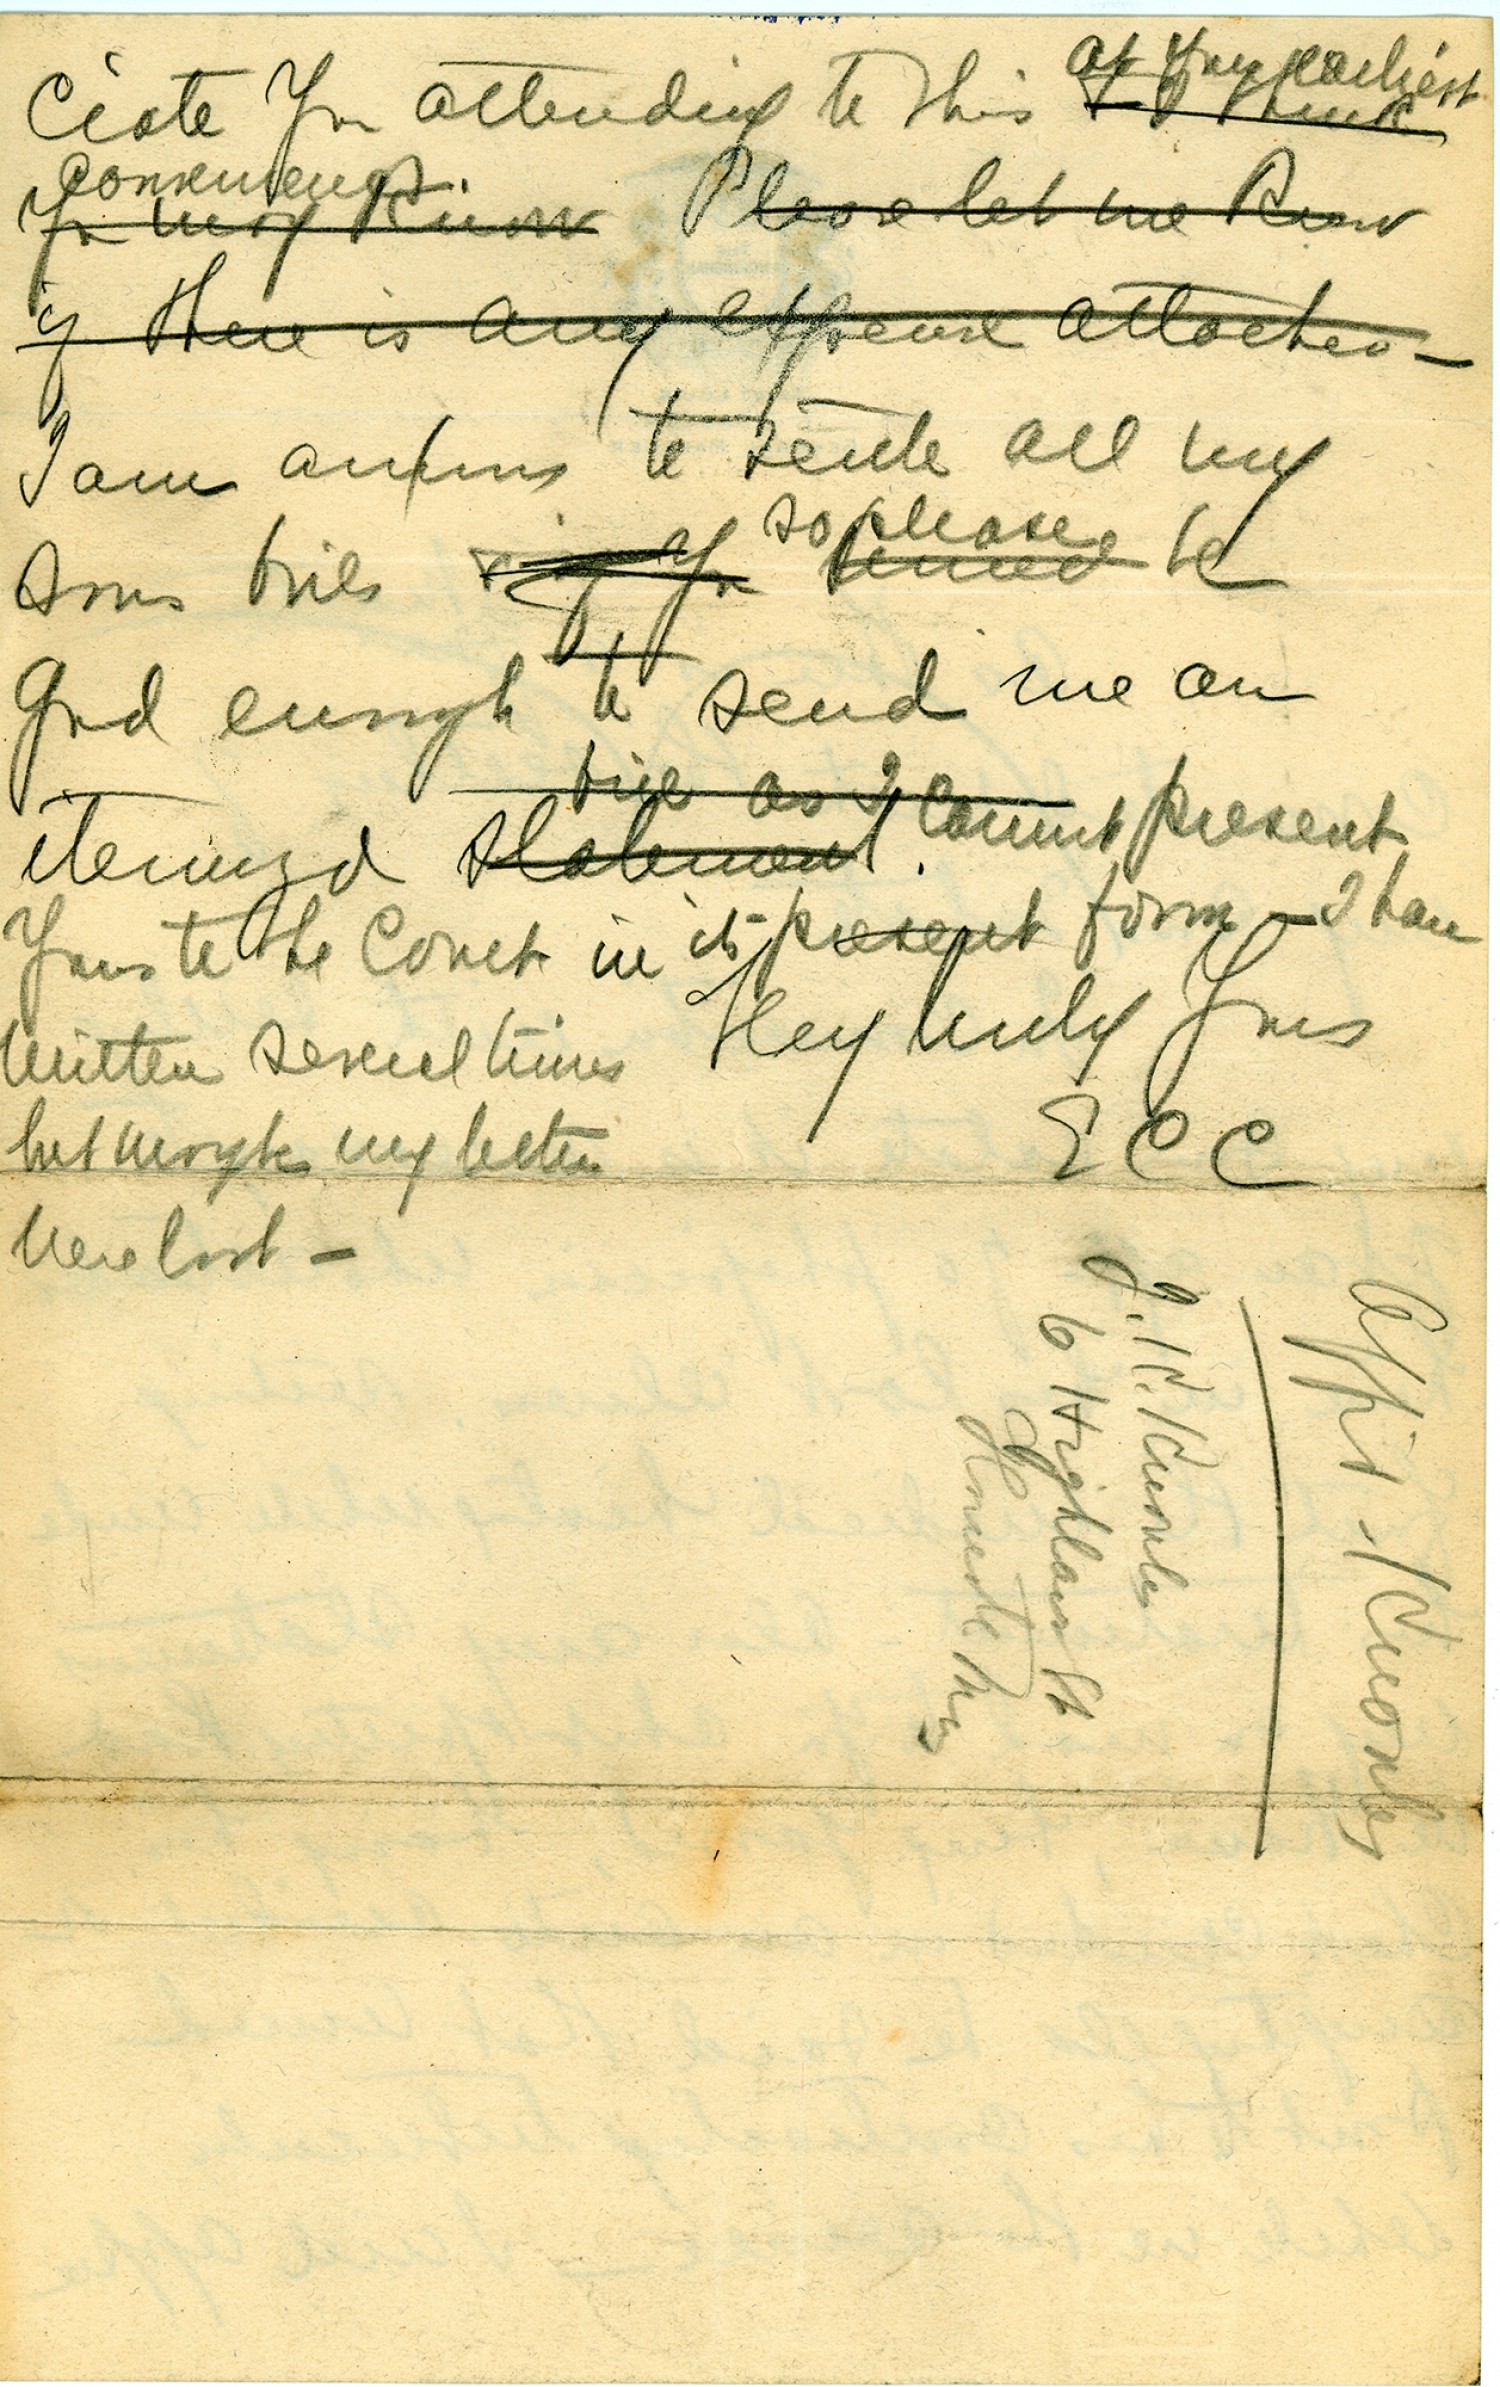 at your earliest
ciate you attending to this I think
convenience.
you may know Please let me know
if there is any expense attached -
I am anxious to settle all my
so please
sons bills if you be
good enough to send me an
bill as I cannot present
itemized statement.
yours to the Court in its present form - I have
written several times Very truly yours
but maybe my letters
were lost -
E C C
J. K. Knowles
6 Highland St
Knowles